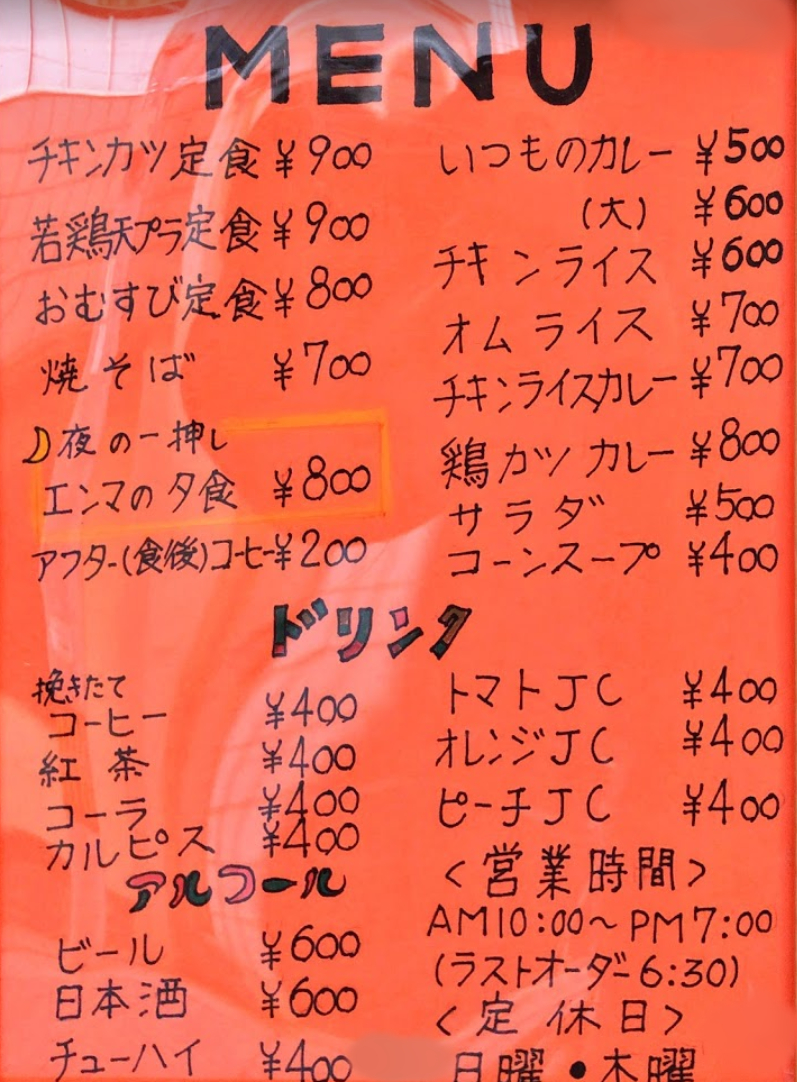 MENU
チキンカツ定食 ¥900
若鶏天プラ定食 ¥900
おむすび定食 ¥800
焼そば ¥700
夜の一押し
エンマの夕食 ¥800
アフター(食後)コーヒー ¥200
いつものカレー ¥500
(大) ¥600
チキンライス ¥600
オムライス ¥700
チキンライスカレー ¥700
鶏カツカレー ¥800
サラダ ¥500
コーンスープ ¥400
ドリンク
挽きたて
コーヒー ¥400
紅茶 ¥400
コーラ ¥400
カルピス ¥400
アルコール
ビール ¥600
日本酒 ¥600
チューハイ ¥400
トマトJC ¥400
オレンジJC ¥400
ピーチJC ¥400
<営業時間>
AM10:00~PM7:00
(ラストオーダー6:30)
<定休日>
日曜・木曜